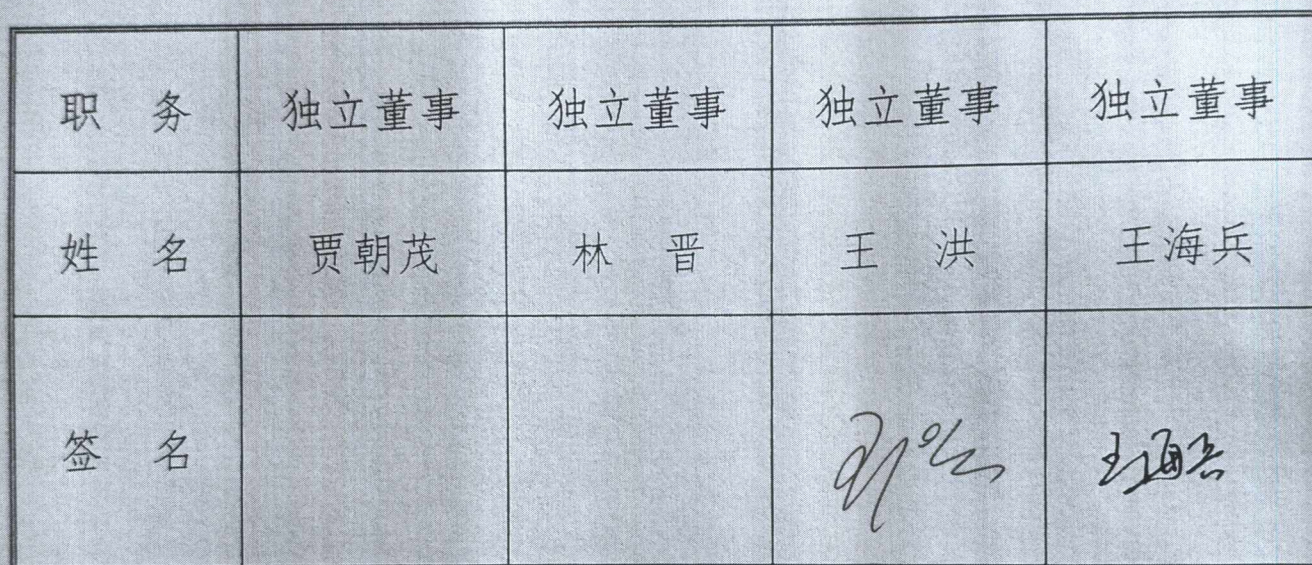 职 务 独立董事 独立董事 独立董事 独立董事
姓 名 贾朝茂 林 晋 王 洪 王海兵
签 名 王海兵